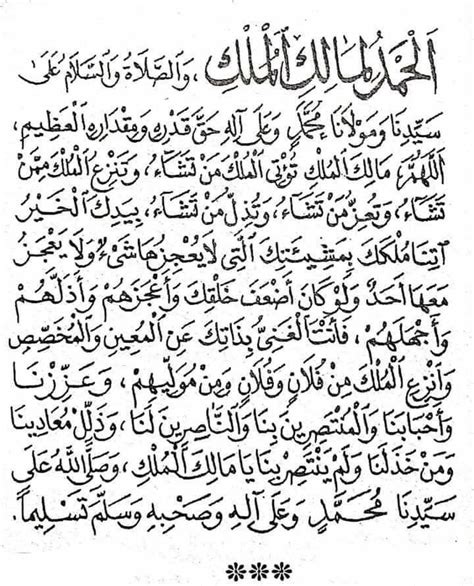 اَلْحَمْدُ لِمَالِكِ الْمُلْكِ ، وَالصَّلَاةُ وَالسَّلَامُ عَلَى
سَيِّدِنَا وَمَوْلَانَا مُحَمَّدٍ وَعَلَى آلِهِ حَقَّ قَدْرِهِ وَمِقْدَارِهِ الْعَظِيمِ ،
اَللّٰهُمَّ مَالِكَ الْمُلْكِ تُؤْتِي الْمُلْكَ مَنْ تَشَاءُ ، وَتَنْزِعُ الْمُلْكَ مِمَّنْ
تَشَاءُ ، وَتُعِزُّ مَنْ تَشَاءُ ، وَتُذِلُّ مَنْ تَشَاءُ ، بِيَدِكَ الْخَيْرُ
آتِنَا مُلْكَكَ بِمَشِيئَتِكَ الَّتِي لَا يُعْجِزُهَا شَيْءٌ وَلَا يَعْجَزُ
مَعَهَا أَحَدٌ وَلَوْ كَانَ أَضْعَفَ خَلْقِكَ وَأَعْجَزَهُمْ وَأَذَلَّهُمْ
وَأَجْهَلَهُمْ ، فَأَنْتَ الْغَنِيُّ بِذَاتِكَ عَنِ الْمُعِينِ وَالْمُخَصِّصِ
وَانْزِعِ الْمُلْكَ مِنْ فُلَانٍ وَفُلَانٍ وَمِنْ مُوَلِّيهِمْ ، وَعَزِّزْنَا
وَأَحْبَابَنَا وَالْمُنْتَصِرِينَ بِنَا وَالنَّاصِرِينَ لَنَا ، وَذَلِّلْ مُعَادِينَا
وَمَنْ خَذَلَنَا وَلَمْ يَنْتَصِرْ بِنَا يَا مَالِكَ الْمُلْكِ ، وَصَلَّى اللهُ عَلَى
سَيِّدِنَا مُحَمَّدٍ وَعَلَى آلِهِ وَصَحْبِهِ وَسَلَّمَ تَسْلِيمًا .
***